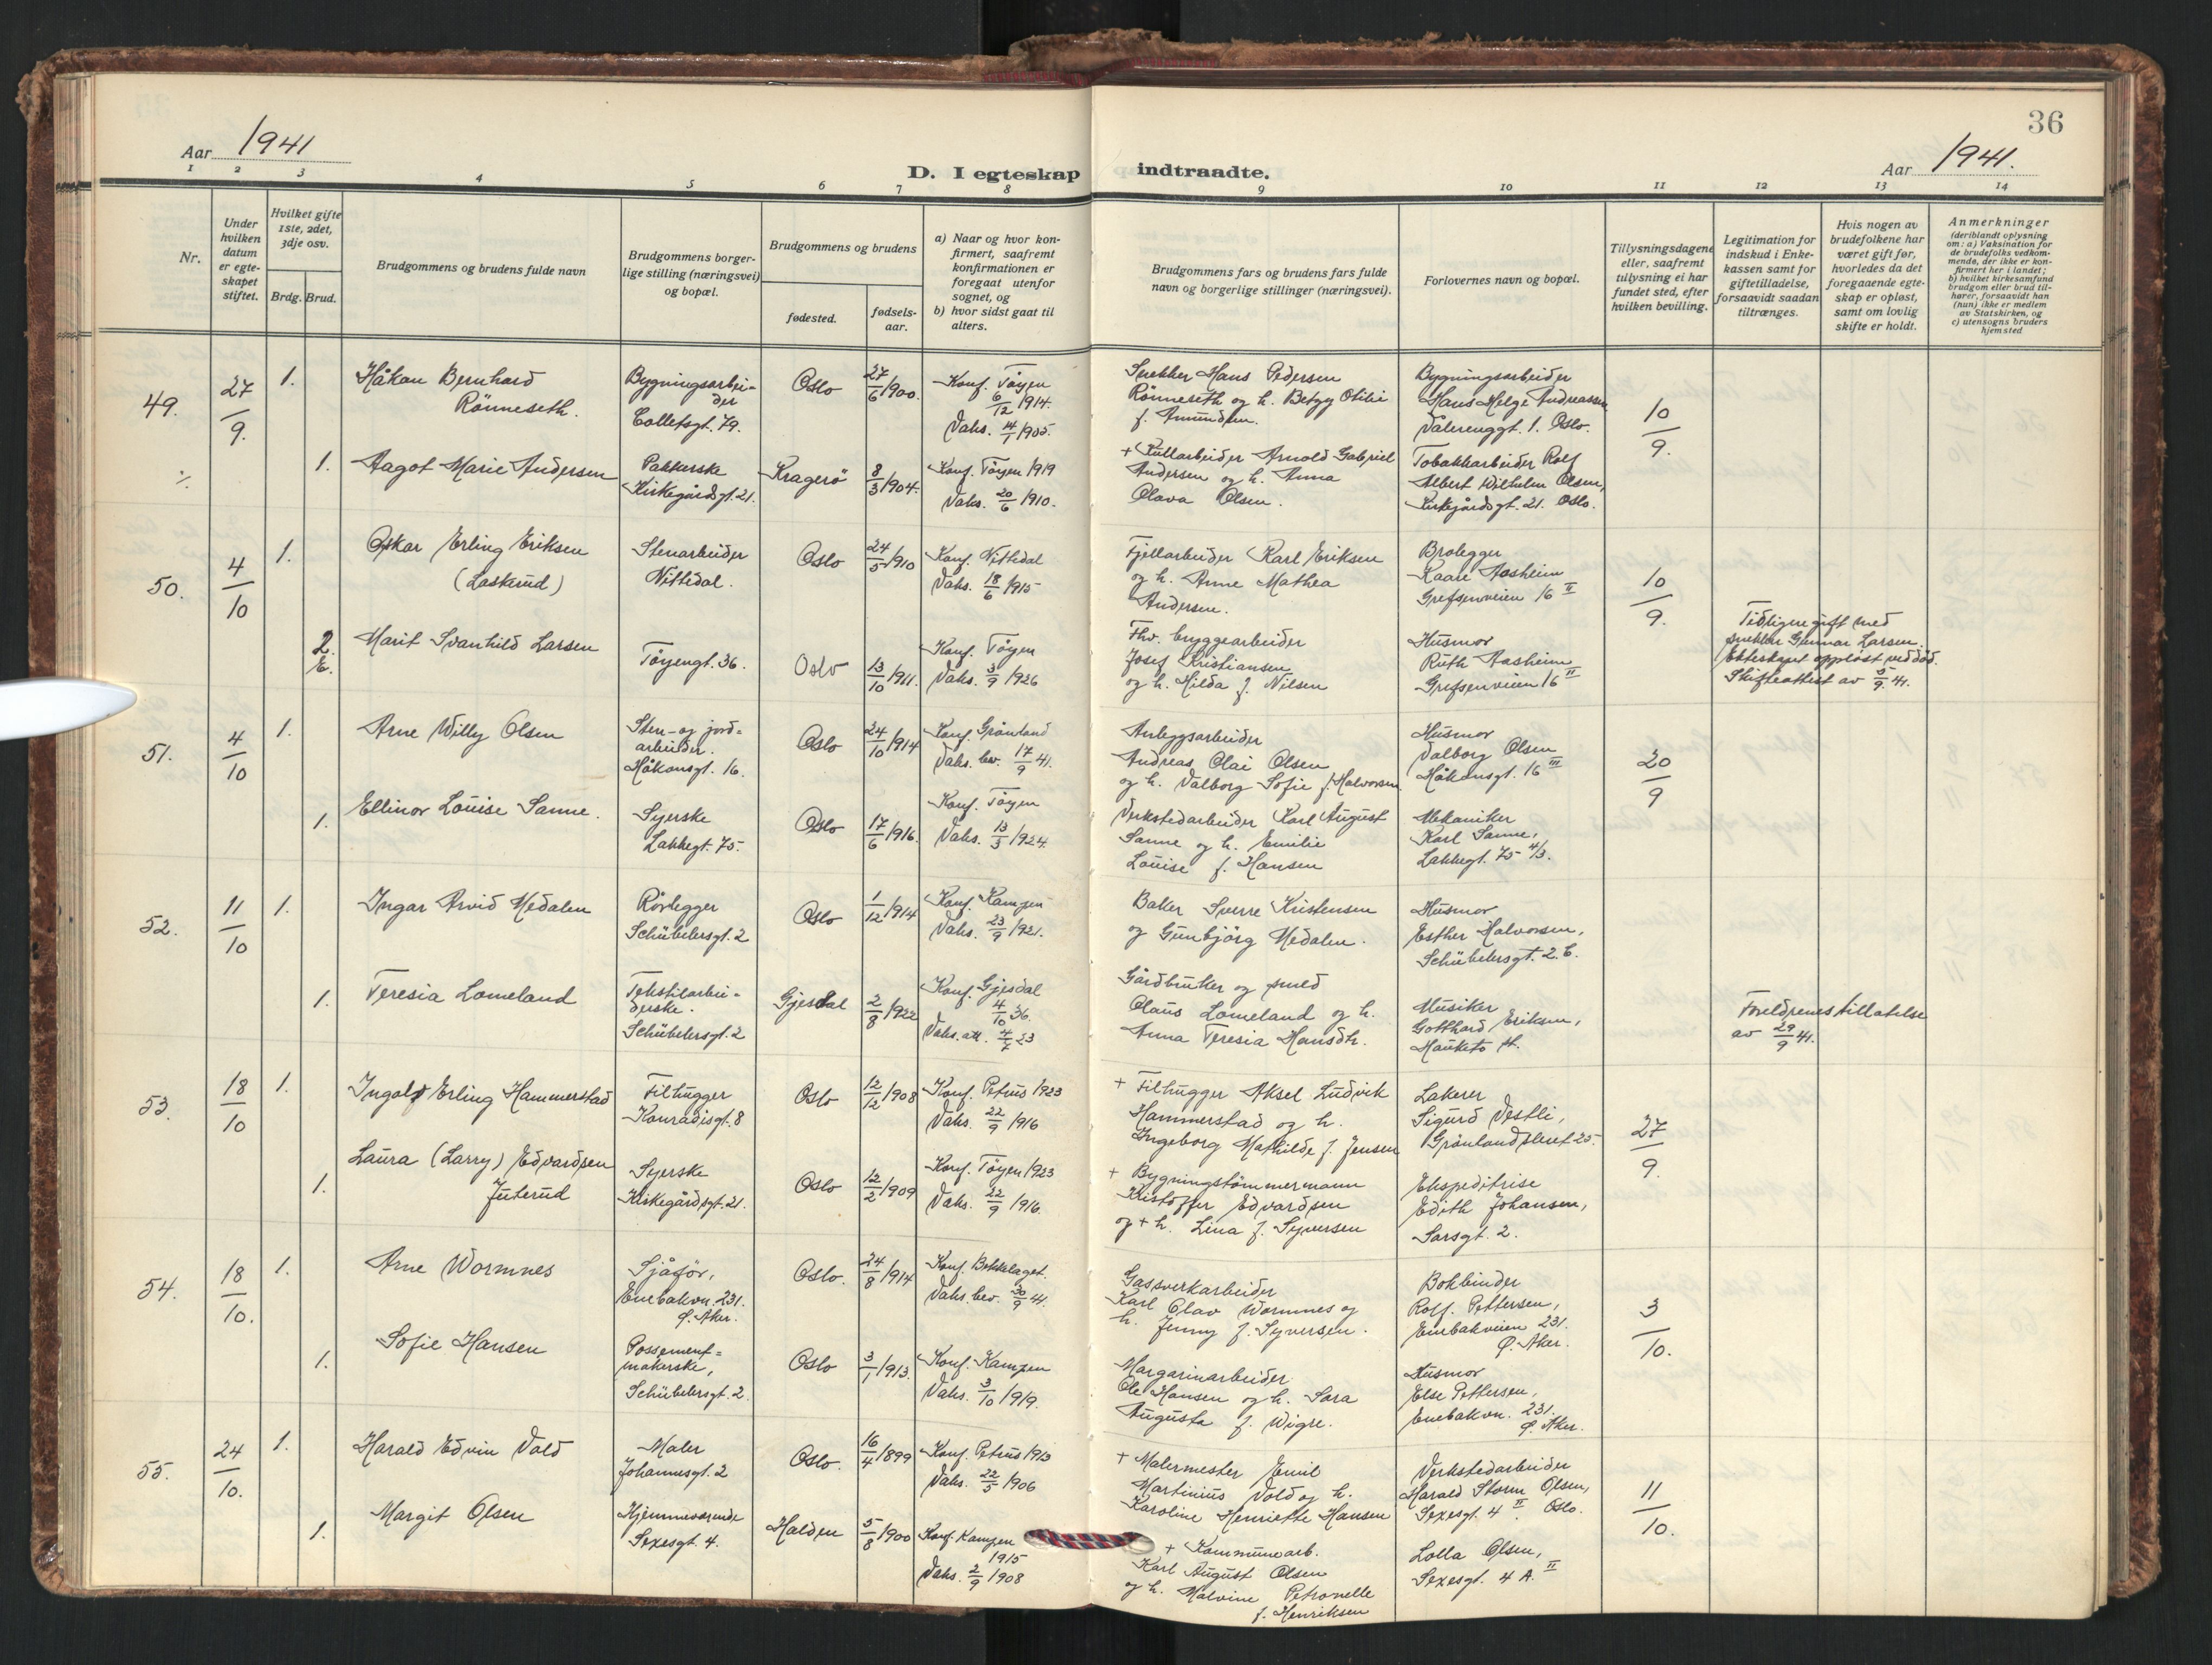 36
Aar 1941
D. I egteskap indtraadte.
Aar 1941.
1 2 3 4 5 6 7 8 9 10 11 12 13 14
Nr.
Under hvilken datum er egte-skapet stiftet.
Hvilket gifte 1ste, 2det, 3dje osv.
Brdg. Brud.
Brudgommens og brudens fulde navn
Brudgommens borger-
lige stilling (næringsvei)
og bopæl.
Brudgommens og brudens
fødested.
fødsels-
aar.
a) Naar og hvor kon-
firmert, saafremt
konfirmationen er
foregaat utenfor
sognet, og
b) hvor sidst gaat til
alters.
Brudgommens fars og brudens fars fulde
navn og borgerlige stillinger (næringsvei).
Forlovernes navn og bopæl.
Tillysningsdagene
eller, saafremt
tillysning ei har
fundet sted, efter
hvilken bevilling.
Legitimation for
indskud i Enke-
kassen samt for
giftetilladelse,
forsaavidt saadan
tiltrænges.
Hvis nogen av
brudefolkene har
været gift før,
hvorledes da det
foregaaende egte-
skap er opløst,
samt om lovlig
skifte er holdt.
Anmerkninger
(deriblandt oplysning
om: a) Vaksination for
de brudefolks vedkom-
mende, der ikke er kon-
firmert her i landet;
b) hvilket kirkesamfund
brudgom eller brud til-
hører, forsaavidt han
(hun) ikke er medlem
av Statskirken, og
c) utensogns bruders
hjemsted
49.
27/9.
1.
Håkan Bernhard
Rönneseth.
Bygningsarbei-
der
Colletsgt. 79.
Oslo
27/6 1900.
Konf. Töyen
6/12 1914.
Vaks. 14/1 1905.
Snekker Hans Pedersen
Rönneseth og h. Betzy Otilie
f. Amundsen.
Bygningsarbeider
Hans Helge Andreassen
Vålerenggt. 1. Oslo.
10/9.
1.
Aagot Marie Andersen
Pakkerske
Kirkegårdsgt. 21.
Kragerö
8/3 1904.
Konf. Töyen 1919
Vaks. 20/6 1910.
+ Kullarbeider Arnold Gabriel
Andersen og h. Anna
Olava Olsen.
Tobakkarbeider Rolf
Albert Wilhelm Olsen,
Kirkegårdsgt. 21. Oslo.
50.
4/10
1.
Oskar Erling Eriksen
(Laskerud)
Stenarbeider
Nittedal.
Oslo
24/5 1910
Konf. Nittedal
Vaks. 18/6 1915
Fjellarbeider Karl Eriksen
og h. Anne Mathea
Andersen.
Brolegger
Kaare Aasheim
Grefsenveien 16 II
10/9.
2.
E.
Marit Svanhild Larsen
Töyengt. 36.
Oslo
13/10 1911.
Konf. Töyen
Vaks. 3/9 1926
Fhv. bryggearbeider
Josef Kristiansen
og h. Hilda f. Nilsen
Husmor
Ruth Aasheim
Grefsenveien 16 II
Tidligere gift med
snekker Gunnar Larsen.
Ekteskapet opplöst ved död.
Skifteattest av 3/9. 41.
51.
4/10
1.
Arne Willy Olsen
Sten- og jord-
arbeider.
Håkonsgt. 16.
Oslo
24/10 1914
Konf. Grönland
Vaks. bev. 17/9 41.
Anleggsarbeider
Andreas Olai Olsen
og h. Valborg Sofie f. Halvorsen
Husmor
Valborg Olsen
Håkonsgt. 16 III
20/9
1.
Ellinor Louise Sanne.
Syerske
Lakkegt. 75.
Oslo
17/6 1916.
Konf. Töyen
Vaks. 13/3 1924.
Verkstedarbeider Karl August
Sanne og h. Emilie
Louise f. Hansen
Mekaniker
Karl Sanne,
Lakkegt. 75 4/3.
52.
11/10
1.
Ingar Arvid Medalen
Rörlegger
Schübelersgt. 2
Oslo
1/12 1914
Konf. Kampen
Vaks. 23/9 1921.
Baker Sverre Kristensen
og Gunbjörg Medalen.
Husmor
Esther Halvorsen,
Schübelersgt. 2. C.
1.
Teresia Lomeland
Tekstilarbei-
derske.
Schübelersgt. 2
Gjesdal
2/8 1922
Konf. Gjesdal
4/10 36.
Vaks. att. 4/7 23
Gårdbruker og smed
Olaus Lomeland og h.
Anna Teresia Hansdtr.
Musiker
Gotthard Eriksen,
Hauketo st.
Foreldrenes tillatelse
av 29/9 41.
53.
18/10
1.
Ingolf Erling Hammerstad
Filhugger
Konradisgt. 8
Oslo
12/12 1908
Konf. Petrus 1923
Vaks. 22/9 1916
+ Filhugger Aksel Ludvik
Hammerstad og h.
Ingeborg Mathilde f. Jensen
Lakerer
Sigurd Vestli,
Grönlandsleret 25.
27/9.
1.
Laura (Larry) Edvardsen
Juterud
Syerske
Kirkegårdsgt. 21.
Oslo
12/2 1909
Konf. Töyen 1923
Vaks. 22/9 1916.
+ Bygningstömmermann
Kristoffer Edvardsen
og + h. Lina f. Syversen
Ekspeditrise
Edith Johansen,
Sarsgt. 2.
54.
18/10.
1.
Arne Wormnes
Sjåför,
Enebakvn. 231.
Ö. Aker.
Oslo.
24/8 1914
Konf. Bekkelaget.
Vaks. bev. 30/9 41.
Gassverkarbeider
Karl Olav Wormnes og
h. Jenny f. Syversen.
Bokbinder
Rolf. Pettersen,
Enebakveien 231.
Ö. Aker.
3/10.
1.
Sofie Hansen
Possement-
makerske,
Schübelersgt. 2.
Oslo
3/1 1913.
Konf. Kampen
Vaks. 3/10 1919.
Margarinarbeider
Ole Hansen og h. Sara
Augusta f. Wigre.
Husmor
Else Pettersen,
Enebakvn. 231.
Ö. Aker.
55.
24/10.
1.
Harald Edvin Vold
Maler
Johannesgt. 2
Oslo.
16/4 1899
Konf. Petrus 1913
Vaks. 22/5 1906
+ Malermester Emil
Martinius Vold og h.
Karoline Henriette Hansen
Verkstedarbeider
Harald Storm Olsen,
Sexesgt. 4 II. Oslo.
11/10.
1.
Margit Olsen
Hjemmeværende
Sexesgt. 4.
Halden
5/8 1900
Konf. Kampen
1915
Vaks. 2/9 1908
+ Kommunearb.
Karl August Olsen
og h. Malvine Petronelle
f. Henriksen
Lolla Olsen,
Sexesgt. 4 A. II